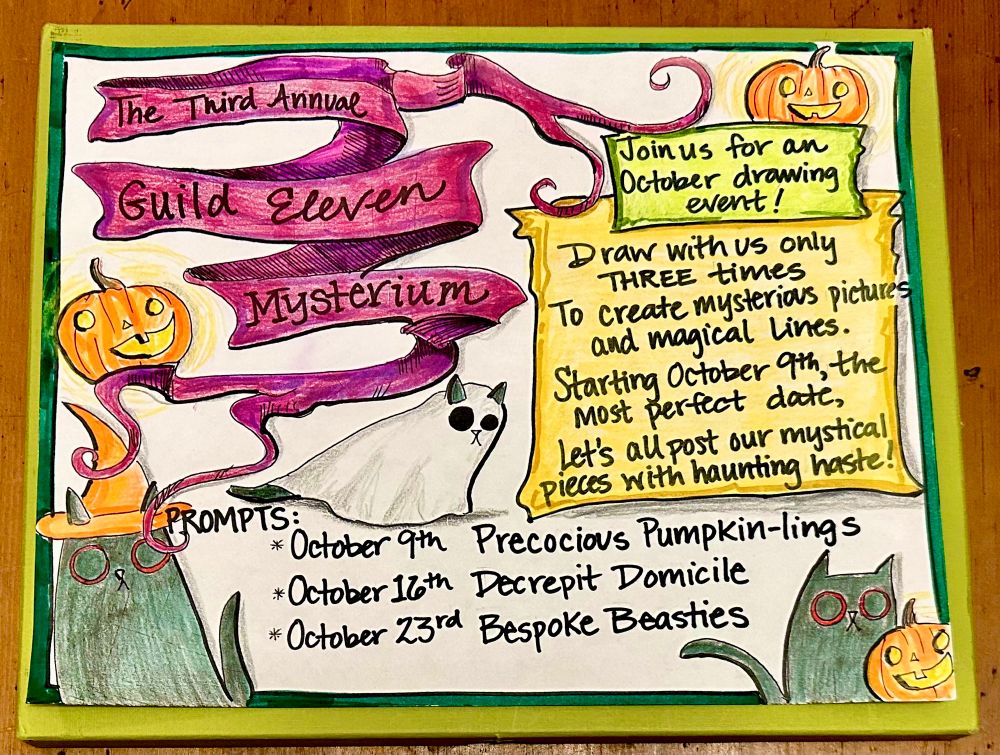 The Third Annual
Guild Eleven
Mysterium
Join us for an
October drawing
event!
Draw with us only
THREE times
To create mysterious pictures
and magical Lines.
Starting October 9th, the
most perfect date,
Let's all post our mystical
pieces with haunting haste!
PROMPTS:
* October 9th Precocious Pumpkin-lings
* October 16th Decrepit Domicile
* October 23rd Bespoke Beasties